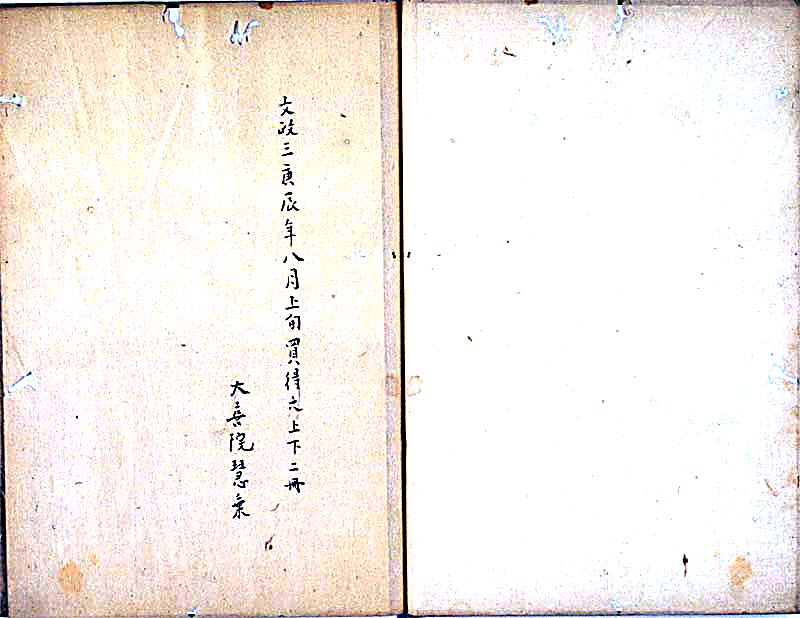 文政三庚辰年八月上旬買得之上下二冊
大喜院慧